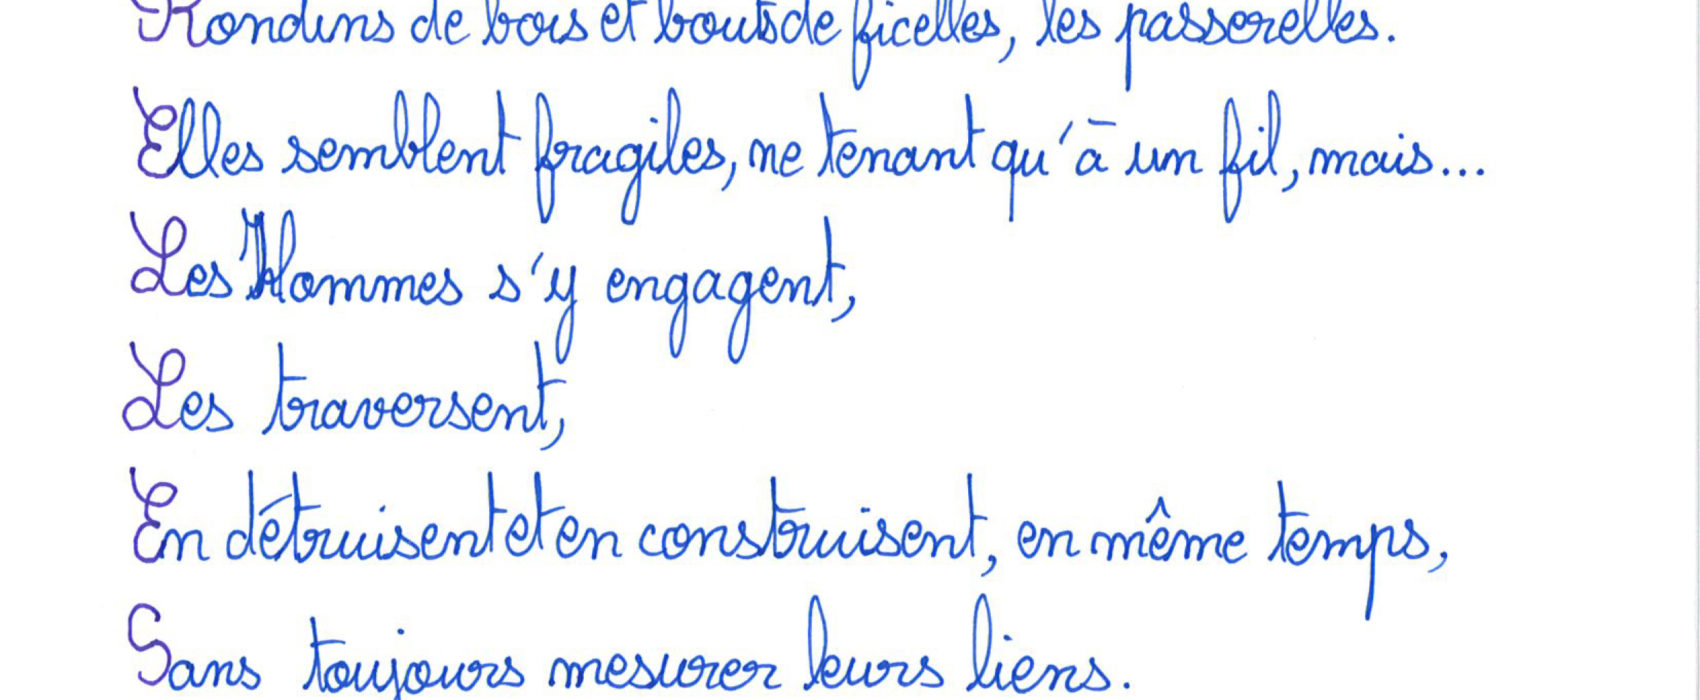 Rondins de bois et bouts de ficelles, les passerelles.
Elles semblent fragiles, ne tenant qu'à un fil, mais...
Les Hommes s'y engagent,
Les traversent,
En détruisent et en construisent, en même temps,
Sans toujours mesurer leurs liens.